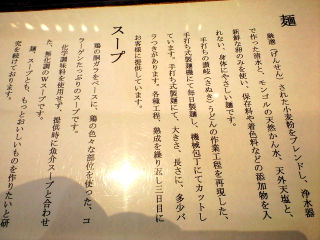 麺
厳選(げんせん)された小麦粉をブレンドし、浄水器
で作った清水と、モンゴルの天然かん水、天外天塩と、
新鮮な卵のみを使い、保存料や着色料などの添加物を入
れない、身体にやさしい麺です。
手打ちの讃岐(さぬき)うどんの作業工程を再現した、
手打ち式製麺機にて毎日製麺し、機械包丁にてカットし
ています。手打ち式製麺にて、大きさ、長さに、多少バ
ラつきがあります。各種工程、熟成を繰り返し三日目に
お客様に提供しています。
スープ
鶏の胴ガラをベースに、鶏の色々な部位を使った、コ
ラーゲンたっぷりのスープです。
化学調味料を使用せず、提供時に魚介スープと合わせ
た、無化調のWスープです。
麺、スープとも、もっとおいしいものを作りたいと研
究を続けております。